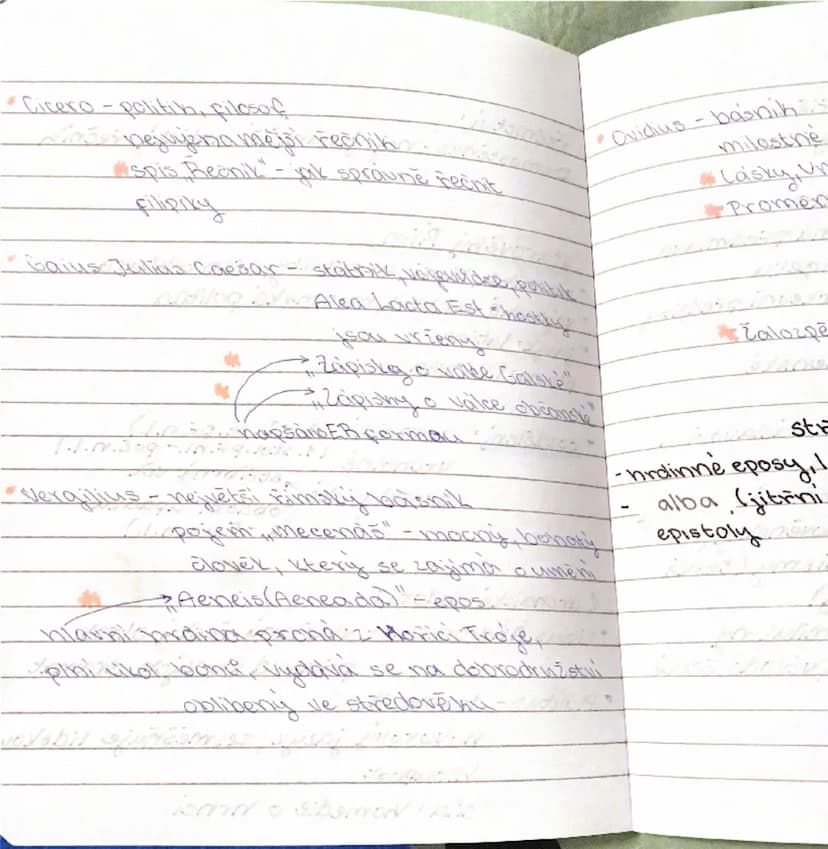 Cicero - politik, filosof
nejvýznamější řečník
spis „Řečník" - jak správně řečnit
filipiky
Gaius Julius Caesar - státník, vojevůdce, politik
Alea Lacta Est - kostky
jsou vrženy
„Zápisky o válce Galské"
„Zápisky o válce občanské"
napsáno ER formou
Vergilius - největší římský básník
pojem „mecenáš" - mocný, bohatý
člověk, který se zajímá o umění
„Aeneis (Aeneada)" - epos
hlavní hrdina prchá z Hořící Tróje,
plní úkol bohů, vydává se na dobrodružství
oblíbený ve středověku
Ovidius - básník
milostné
Lásky,
Promě
Žalozpě
stř
- hrdinné eposy,
- alba, (jitřní
epistoly